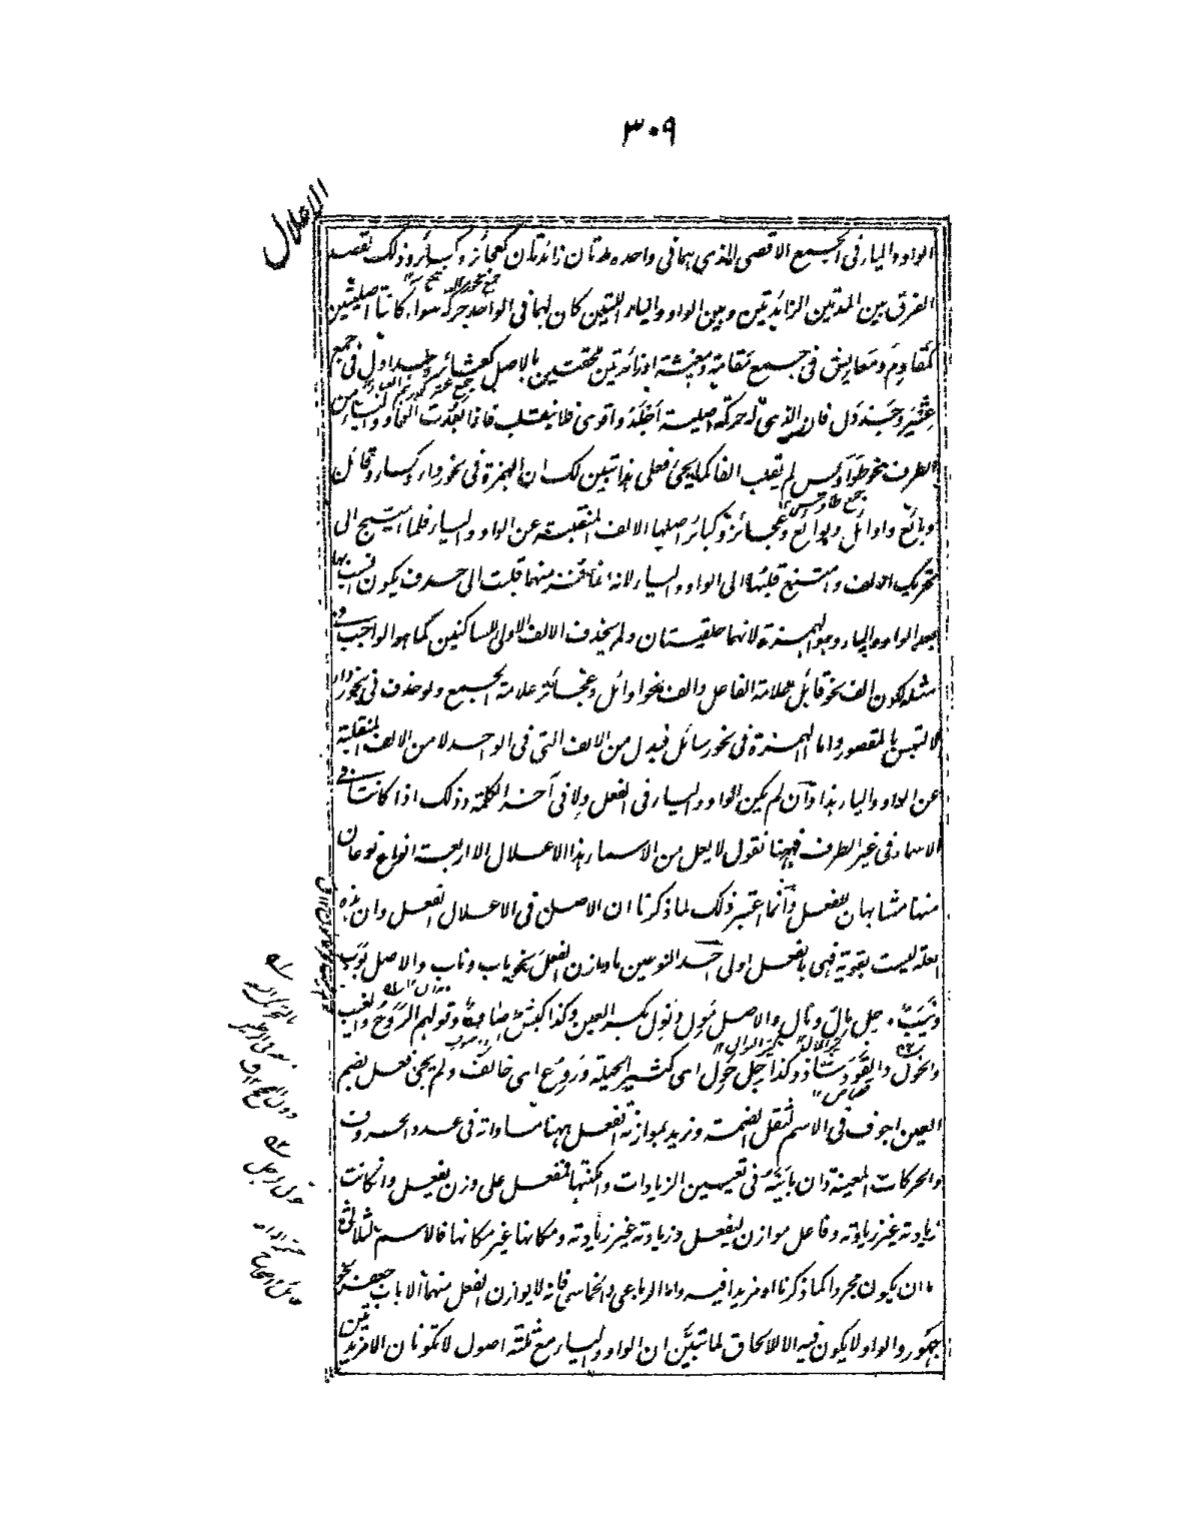 ٣٠٩
الاعلال
الواو والياء فى الجمع الاقصى الذى هما فى واحده مدتان زائدتان كعجائز وكبائر وذلك لقصد
الفرق بين المدتين الزائدتين وبين الواو والياء اللتين كان لهما فى الواحد حركة سواء كانتا اصليتين
كمقاوم ومعايش فى جمع مقامة ومعيشة او زائدتين ملحقتين بالاصل كعثاير وجداول فى جمع
عثير وجدول فان الذى له حركة اصلية اجلد واقوى فلا ينقلب فاذا بعدت الواو والياء من
الطرف نحو طواويس لم يقلب الفا كما يجئ فعلى هذا تبين لك ان الهمزة فى نحو رداء وكساء وقائل
وبائع واوائل وبوائع وعجائز وكبائر اصلها الالف المنقلبة عن الواو والياء فلما احتيج الى
تحريك الالف وامتنع قلبها الى الواو والياء لانه انما فر منهما قلبت الى حرف يكون انسب بها
بعد الواو والياء وهو الهمزة لانهما حلقيتان ولم يحذف الالف الاولى للساكنين كما هو الواجب فى
مثله لكون الف نحو قائل علامة الفاعل والف نحو اوائل وعجائز علامة الجمع ولو حذف فى نحو رداء
لالتبس بالمقصور واما الهمزة فى نحو رسائل فبدل من الالف التى فى الواحد لا من الالف المنقلبة
عن الواو والياء هذا وان لم يكن الواو والياء فى الفعل ولا فى آخر الكلمة وذلك اذا كانتا فى
الاسماء فى غير الطرف فههنا نقول لا يعل من الاسماء هذا الاعلال الا اربعة انواع نوعان
منها مشابهان للفعل وانما اعتبر ذلك لما ذكرنا ان الاصل فى الاعلال الفعل وان هذه
العلة ليست بقوية فهى بالفعل اولى احد النوعين ما وازن الفعل نحو باب وناب والاصل بوب
ونيب ورجل مال ونال والاصل مول ونول بكسر العين وكذا كبش صاف وقولهم الروح والغيب
والخول والقود شاذ وكذا رجل حول اى كثير الحيلة وروع اى خائف ولم يجئ فعل بضم
العين اجوف فى الاسم لثقل الضمة ونريد بموازنة الفعل ههنا مساواته فى عدد الحروف
والحركات المعينة وان باينه فى تعيين الزيادات وامكنتها فمفعل على وزن يفعل وان كانت
زيادته غير زيادته وفاعل موازن ليفعل وزيادته غير زيادته ومكانها غير مكانها فالاسم الثلاثى
اما ان يكون مجردا كما ذكرنا او مزيدا فيه واما الرباعى والخماسى فانه لا يوازن الفعل منهما الا باب جعفر نحو
جهور والواو لا يكون فيه الا للالحاق لما تبين ان الواو والياء مع ثلثة اصول لا تكونان الا مزيدتين